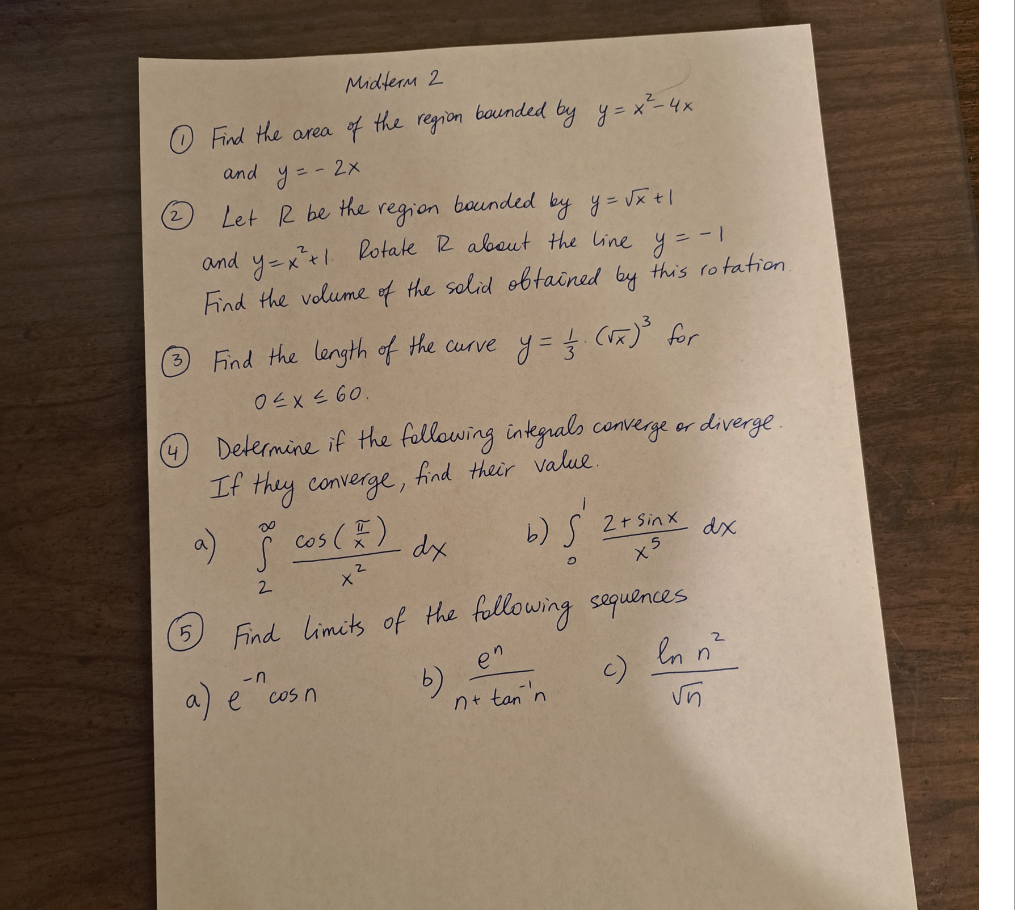 Midterm 2
① Find the area of the region bounded by y = x² - 4x
and y = - 2x
② Let R be the region bounded by y = √x + 1
and y = x² + 1. Rotate R about the line y = -1
Find the volume of the solid obtained by this rotation.
③ Find the length of the curve y = 1/3 · (√x)³ for
0 ≤ x ≤ 60.
④ Determine if the following integrals converge or diverge.
If they converge, find their value.
a) ∫₂^∞ cos(π/x)/x² dx b) ∫₀¹ (2 + sin x)/x⁵ dx
⑤ Find limits of the following sequences
a) e⁻ⁿ cos n b) eⁿ/(n + tan⁻¹n) c) ln n²/√n